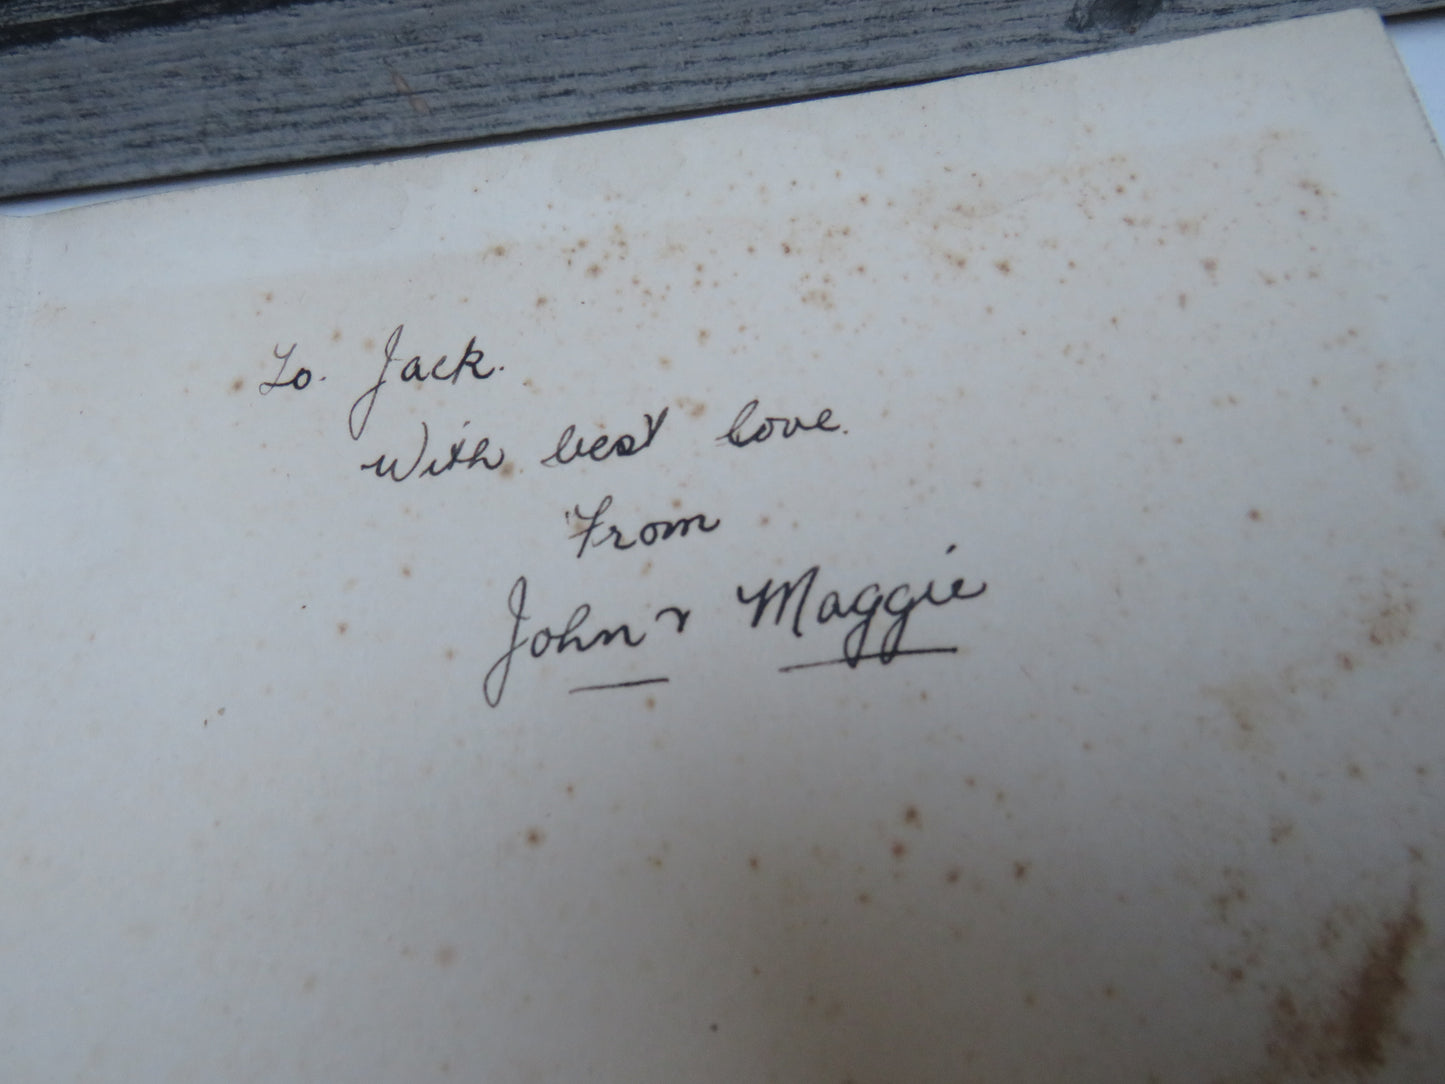 To. Jack.
With best love.
From
John & Maggie